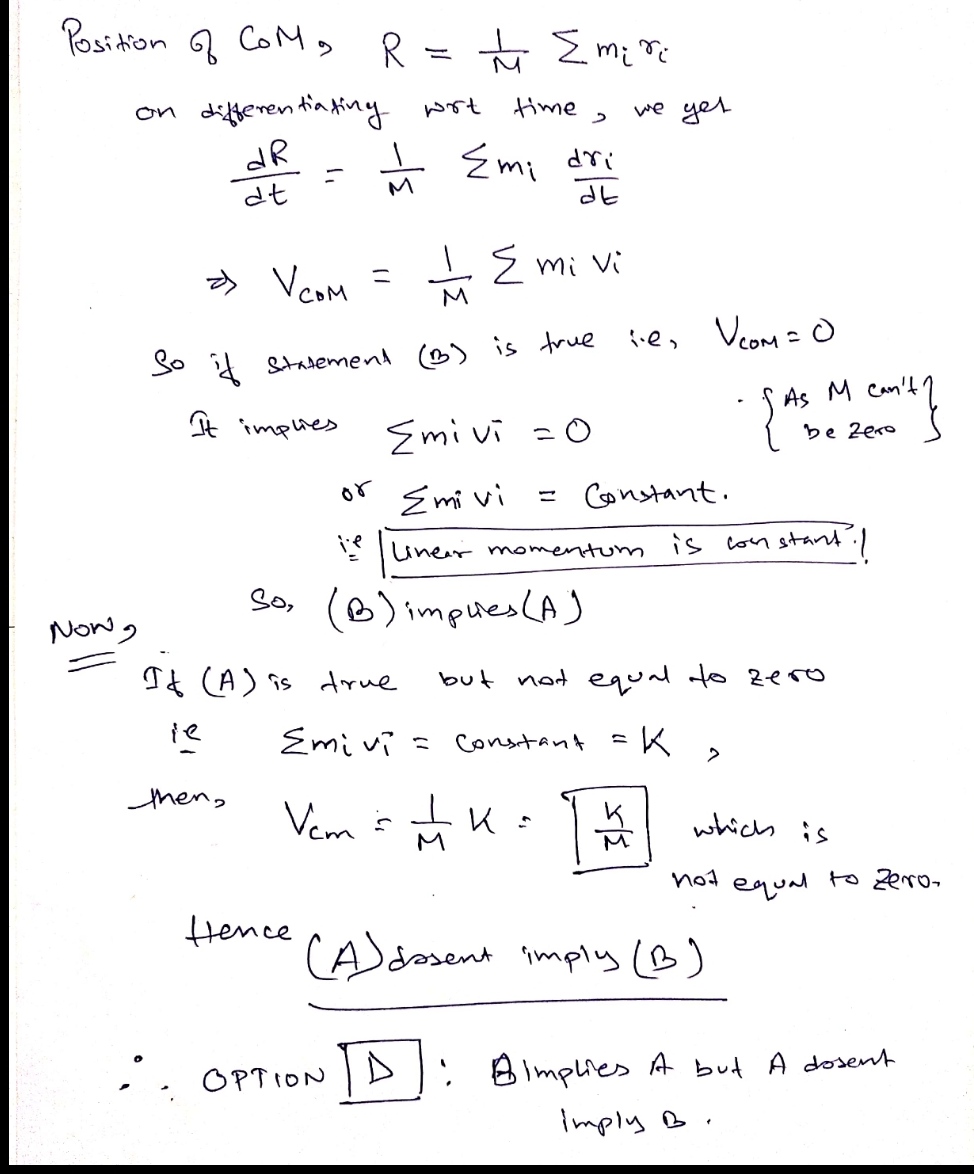 Position of CoM, R = 1/M Σ mi ri
on differentiating wrt time, we get
dR/dt = 1/M Σ mi dri/dt
⇒ VCOM = 1/M Σ mi vi
So if statement (B) is true i.e, VCOM = 0
It implies Σ mi vi = 0 . { As M can't be zero }
or Σ mi vi = Constant.
i.e Linear momentum is constant.
So, (B) implies (A)
Now,
If (A) is true but not equal to zero
ie Σ mi vi = constant = K ,
then, Vcm = 1/M K = K/M which is
not equal to zero.
Hence (A) dosent imply (B)
∴ OPTION D : B Implies A but A dosent
Imply B .